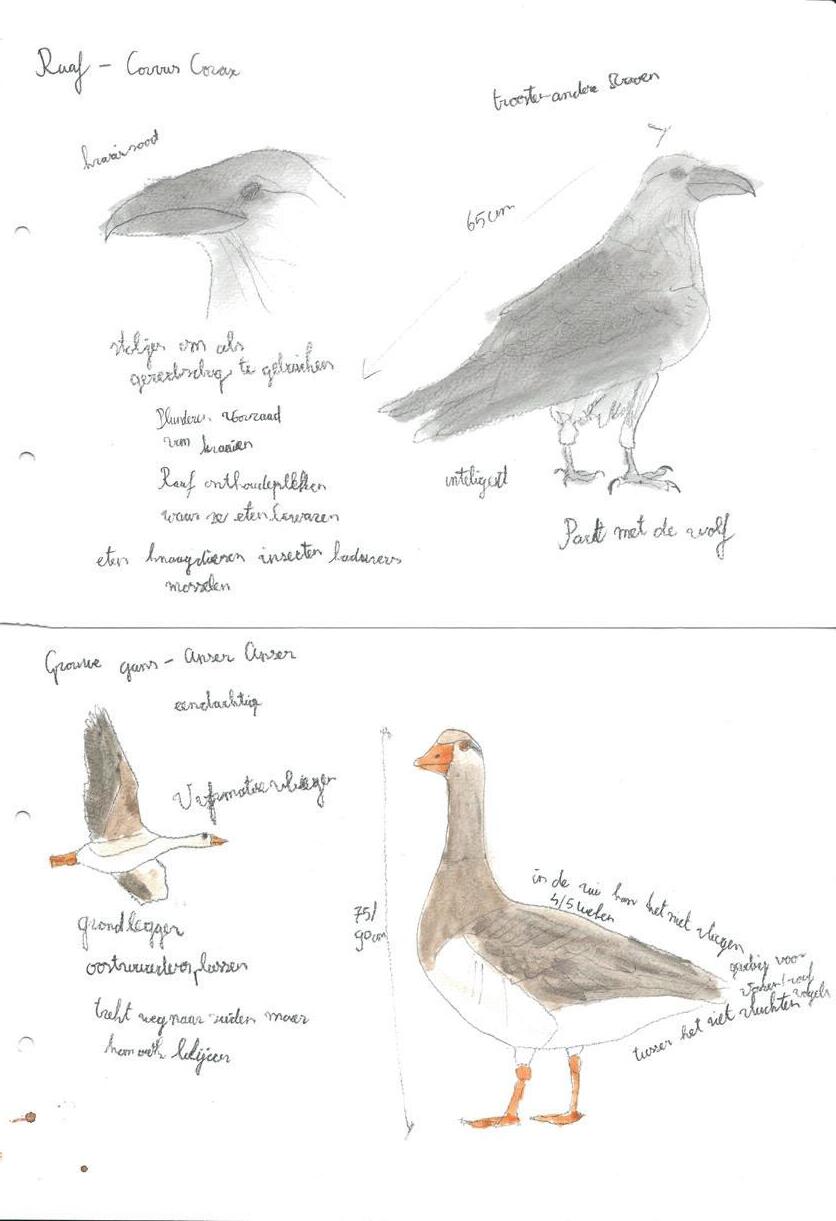 Raaf - Corvus Corax
troosten andere Raven
kraaisoord
65cm
stokjes om als
gereedschap te gebruiken
Plunderen voorraad
van kraaien
Raaf onthoudeplekken
waar ze eten bewaren
inteligent
Pact met de wolf
eten knaagdieren insecten kadavers
mosselen
Grouwe gans - Anser Anser
eendachtig
V formatie vliegen
75/
90cm
in de rui kan het niet vliegen
4/5 weken
gevaar voor
vossen/roof
vogels
tussen het riet vluchten
grondlegger
trekt weg naar zuiden maar
kan ook blijven